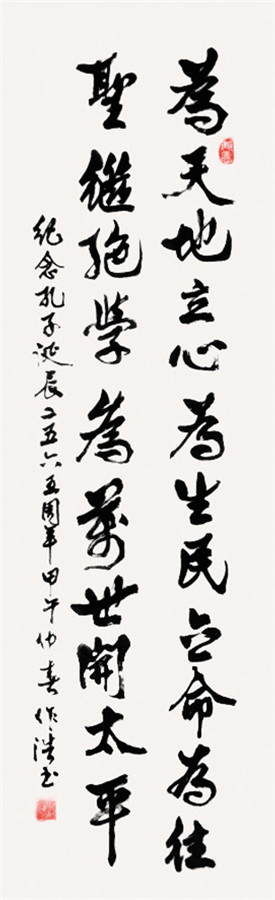 為天地立心為生民立命為往
聖繼絶學為萬世開太平
紀念孔子誕辰二五六五周年甲午仲春作書